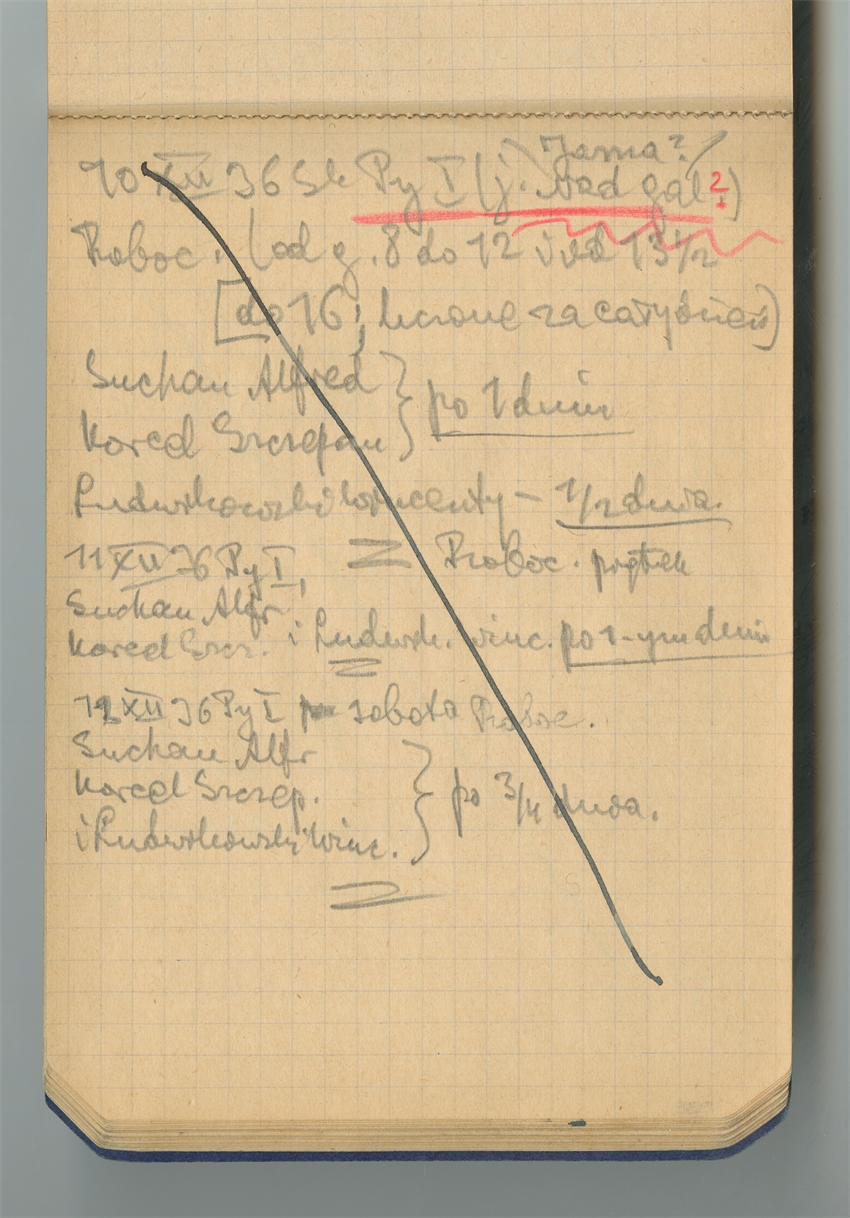 Jama?
10 XII 36 Sk Py I (j. nad gal 2)
Roboc. (od g. 8 do 12 i od 13 1/2
[do 16; liczone za cały dzień)
Suchan Alfred } po 1 dniu
Korcel Szczepan
Ludwikowski Wincenty – 1/2 dnia.
11 XII 36 Py I, Roboc. piątek
Suchan Alfr
Korcel Szcz. i Ludwik. Winc. po 1-ym dniu
12 XII 36 Py I sobota Roboc.
Suchan Alfr
Korcel Szczep. } po 3/4 dnia.
i Ludwikowski Winc.